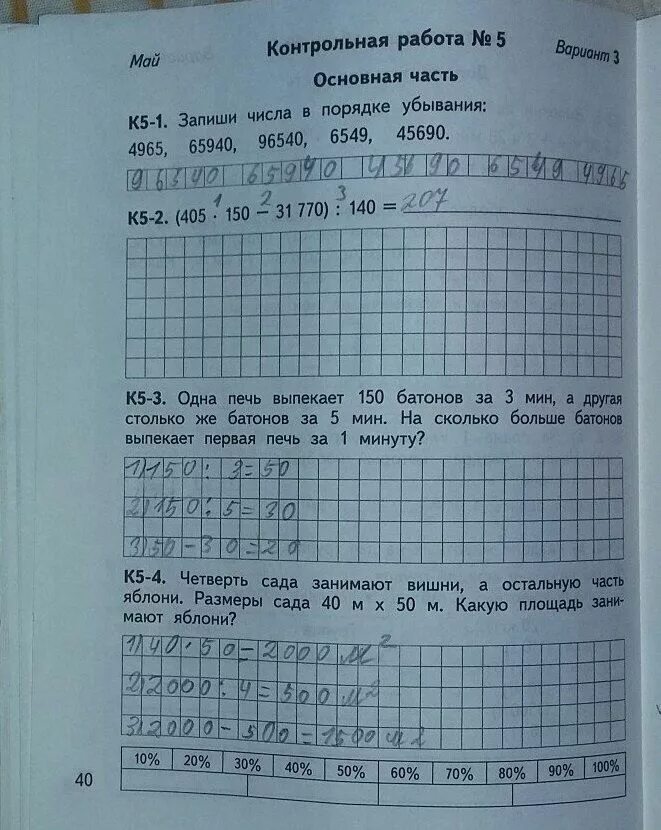 Май
Контрольная работа № 5
Вариант 3
Основная часть
К5-1. Запиши числа в порядке убывания:
4965, 65940, 96540, 6549, 45690.
96540 65940 45690 6549 4965
1 2 3
К5-2. (405 · 150 − 31 770) : 140 = 207
К5-3. Одна печь выпекает 150 батонов за 3 мин, а другая
столько же батонов за 5 мин. На сколько больше батонов
выпекает первая печь за 1 минуту?
1) 150 : 3 = 50
2) 150 : 5 = 30
3) 50 − 30 = 20
К5-4. Четверть сада занимают вишни, а остальную часть
яблони. Размеры сада 40 м х 50 м. Какую площадь зани-
мают яблони?
1) 40 · 50 = 2000 м²
2) 2000 : 4 = 500 м²
3) 2000 − 500 = 1500 м²
10% 20% 30% 40% 50% 60% 70% 80% 90% 100%
40